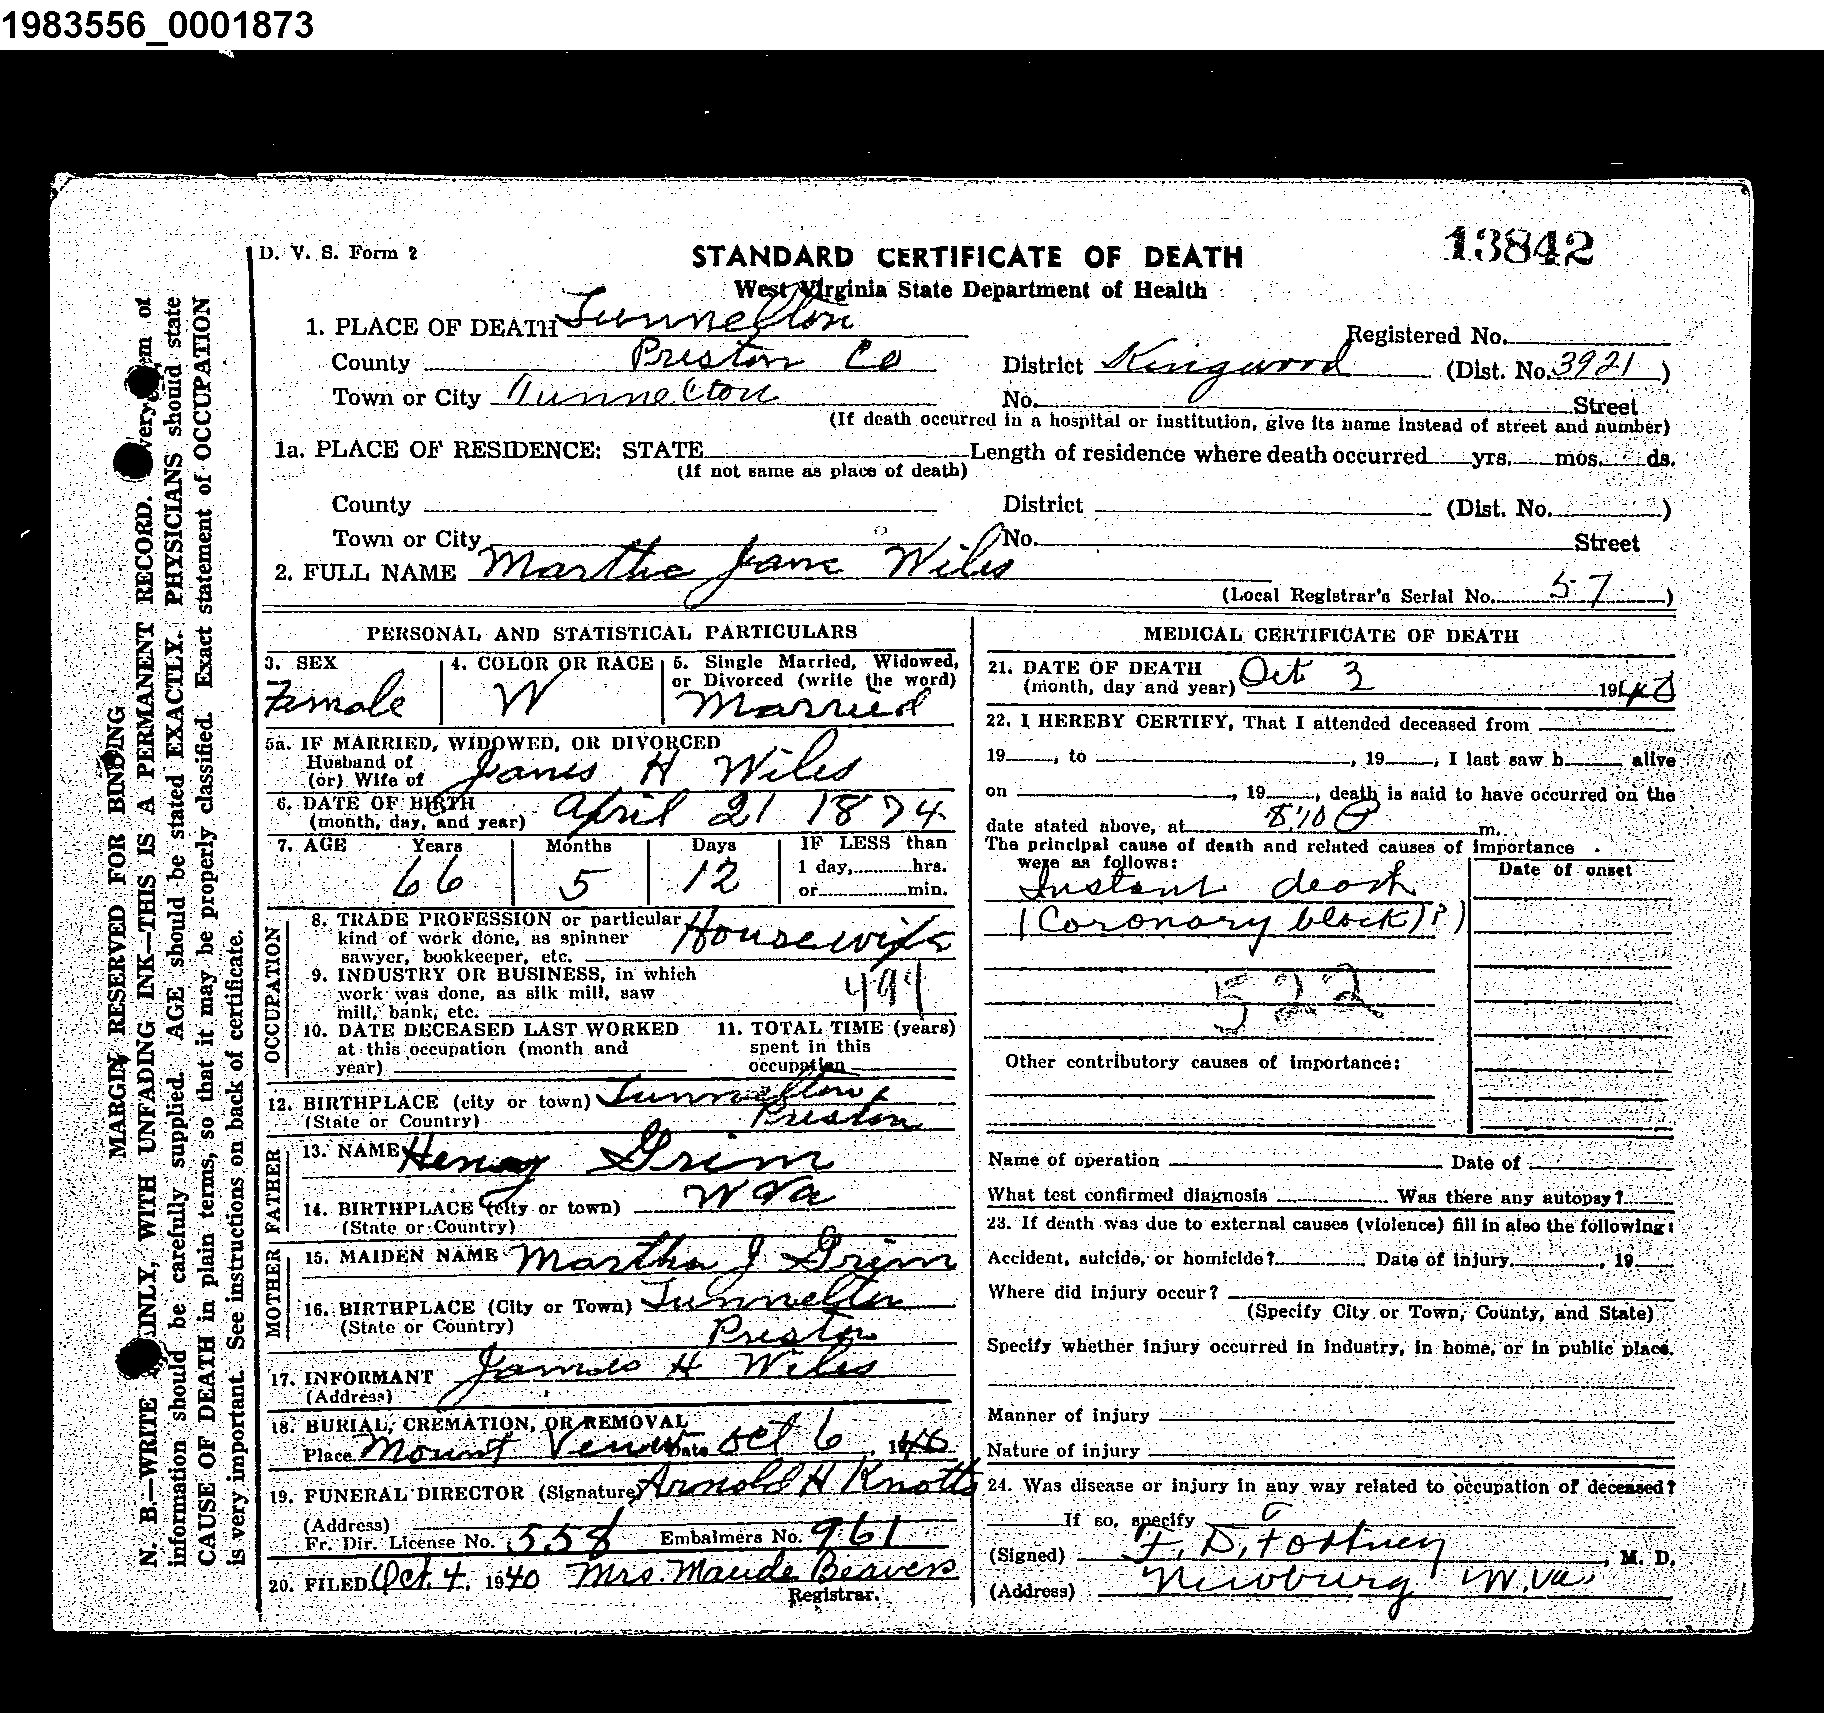 1983556_0001873
D. V. S. Form 2
STANDARD CERTIFICATE OF DEATH
13842
West Virginia State Department of Health
1. PLACE OF DEATH Tunnelton
Registered No.
County Preston Co
District Kingwood (Dist. No. 3921)
Town or City Tunnelton
No. Street
(If death occurred in a hospital or institution, give its name instead of street and number)
1a. PLACE OF RESIDENCE: STATE Length of residence where death occurred yrs. mos. ds.
(If not same as place of death)
County District (Dist. No. )
Town or City No. Street
2. FULL NAME Martha Jane Wiles
(Local Registrar's Serial No. 57)
PERSONAL AND STATISTICAL PARTICULARS
3. SEX
Female
4. COLOR OR RACE
W
5. Single Married, Widowed,
or Divorced (write the word)
Married
5a. IF MARRIED, WIDOWED, OR DIVORCED
Husband of
(or) Wife of James H Wiles
6. DATE OF BIRTH
(month, day, and year) April 21 1874
7. AGE Years Months Days IF LESS than
66 5 12 1 day, hrs.
or min.
OCCUPATION
8. TRADE PROFESSION or particular
kind of work done, as spinner
sawyer, bookkeeper, etc. Housewife
9. INDUSTRY OR BUSINESS, in which
work was done, as silk mill, saw
mill, bank, etc.
10. DATE DECEASED LAST WORKED
at this occupation (month and
year)
11. TOTAL TIME (years)
spent in this
occupation
12. BIRTHPLACE (city or town) Tunnelton
(State or Country) Preston
FATHER
13. NAME Henry Grim
14. BIRTHPLACE (city or town) W Va
(State or Country)
MOTHER
15. MAIDEN NAME Martha J Grim
16. BIRTHPLACE (City or Town) Tunnelton
(State or Country) Preston
17. INFORMANT James H Wiles
(Address)
18. BURIAL, CREMATION, OR REMOVAL
Place Mount Date Oct 6, 1940
19. FUNERAL DIRECTOR (Signature) Arnold H Knotts
(Address)
Fr. Dir. License No. 558 Embalmers No. 961
20. FILED Oct. 4, 1940 Mrs. Maude Beavers
Registrar.
MEDICAL CERTIFICATE OF DEATH
21. DATE OF DEATH
(month, day and year) Oct 3 1940
22. I HEREBY CERTIFY, That I attended deceased from
19 , to , 19 , I last saw h alive
on , 19 , death is said to have occurred on the
date stated above, at 8:10 P m.
The principal cause of death and related causes of importance
were as follows:
Date of onset
Instant death
(Coronary block)(?)
522
Other contributory causes of importance:
Name of operation Date of
What test confirmed diagnosis Was there any autopsy?
23. If death was due to external causes (violence) fill in also the following:
Accident, suicide, or homicide? Date of injury , 19
Where did injury occur?
(Specify City or Town, County, and State)
Specify whether injury occurred in industry, in home, or in public place.
Manner of injury
Nature of injury
24. Was disease or injury in any way related to occupation of deceased?
If so, specify
(Signed) F. D. Fortney, M. D.
(Address) Newburg W. Va.
MARGIN RESERVED FOR BINDING
N. B.—WRITE PLAINLY, WITH UNFADING INK—THIS IS A PERMANENT RECORD. Every item of
information should be carefully supplied. AGE should be stated EXACTLY. PHYSICIANS should state
CAUSE OF DEATH in plain terms, so that it may be properly classified. Exact statement of OCCUPATION
is very important. See instructions on back of certificate.